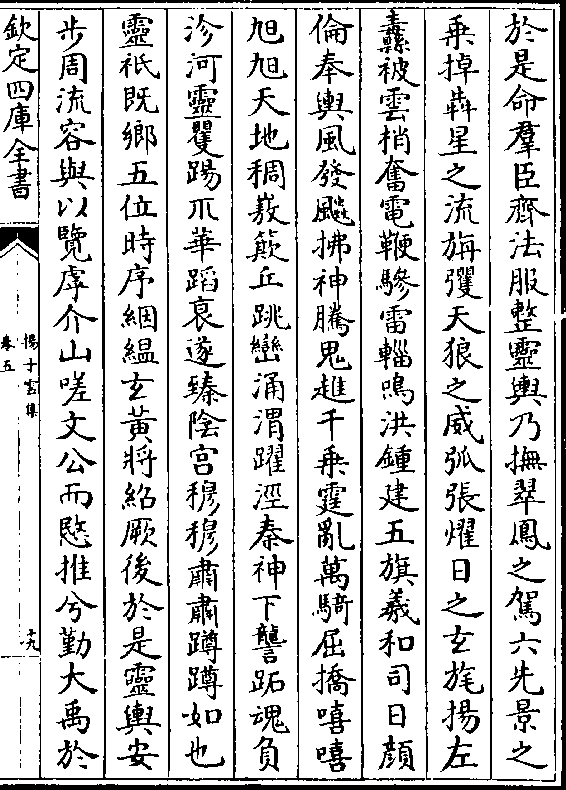 於是命羣臣齊法服整靈輿乃撫翠鳳之駕六先景之
乘掉犇星之流旃彏天狼之威弧張燿日之玄旄揚左
纛被雲梢奮電鞭驂雷輜鳴洪鍾建五旗羲和司日顔
倫奉輿風發飈拂神騰鬼趡千乗霆亂萬騎屈撟嘻嘻
旭旭天地稠㟼簸丘跳巒涌渭躍涇秦神下讋跖魂負
沴河靈矍踢爪華蹈衰遂臻隂宫穆穆肅肅蹲蹲如也
靈祇既鄉五位時序絪縕玄黄將紹厥後於是靈輿安
步周流容與以覽虖介山嗟文公而愍推兮勤大禹於
欽定四庫全書
揚子雲集
卷五
十九